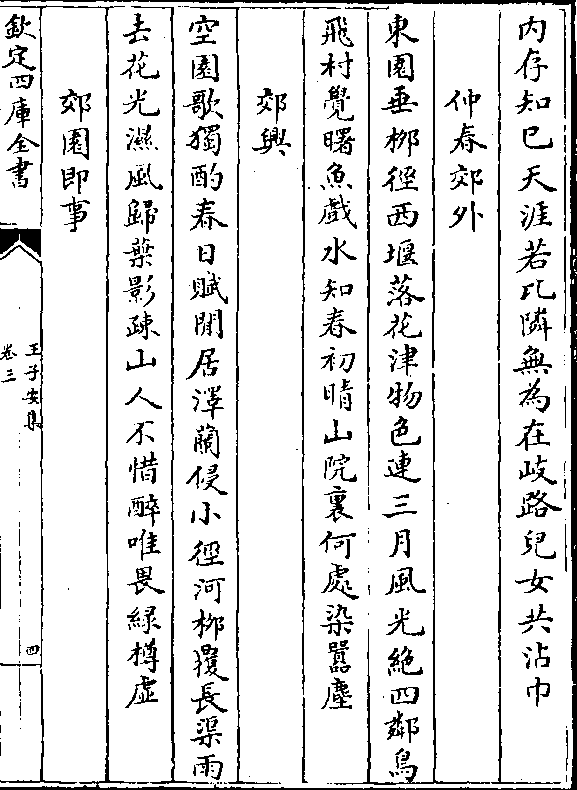 内存知已天涯若比隣無為在岐路兒女共沾巾
仲春郊外
東園垂栁徑西堰落花津物色連三月風光絶四鄰鳥
飛村覺曙魚戲水知春初晴山院裏何處染囂塵
郊興
空園歌獨酌春日賦閒居澤蘭侵小徑河栁覆長渠雨
去花光濕風歸葉影疎山人不惜醉唯畏緑樽虛
郊園即事
欽定四庫全書
王子安集
卷三
四